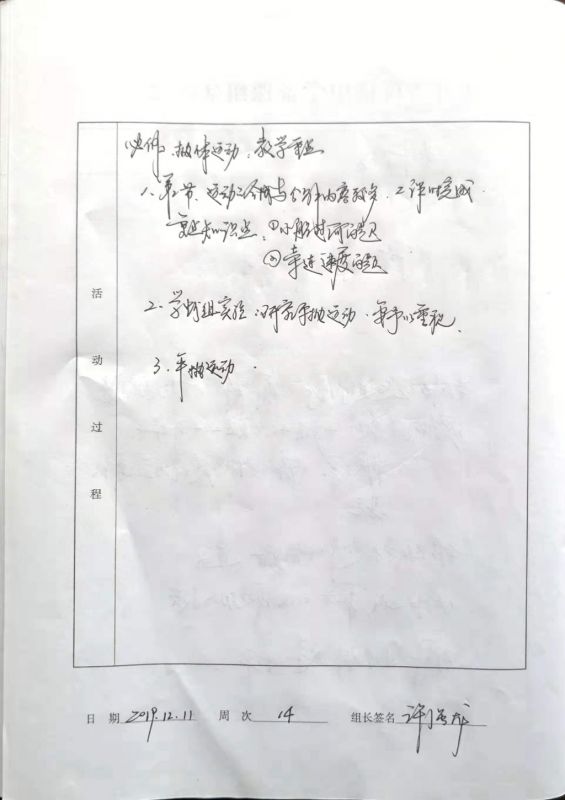 抛体运动 教学重点
1、第2节 运动的合成与分解内容较多 2课时完成
重点知识点：①小船过河问题
②牵连速度问题
2、学生组实验：研究平抛运动，给予以重视
3、平抛运动.
活动过程
日期 2019.12.11 周次 14 组长签名